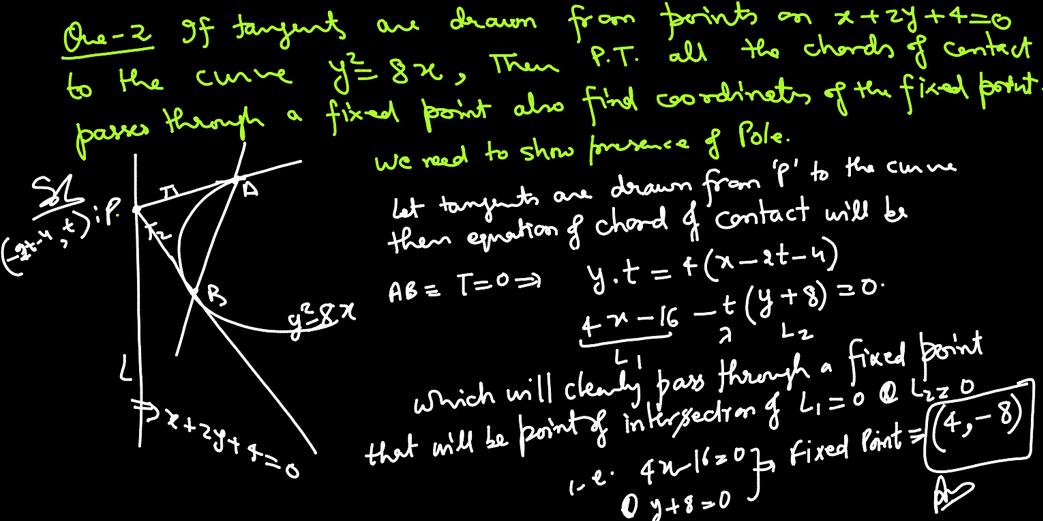 Que-2 If tangents are drawn from points on x+2y+4=0
to the curve y²=8x, Then P.T. all the chords of contact
passes through a fixed point also find coordinates of the fixed point.
we need to show presence of Pole.
Sol
(-2t-4, t) : P.
T₁
A
T₂
B
y²=8x
L
⇒ x+2y+4=0
Let tangents are drawn from 'P' to the curve
then equation of chord of contact will be
AB ≡ T=0 ⇒ y.t = 4(x-2t-4)
4x-16 -t(y+8)=0.
L₁ λ L₂
which will clearly pass through a fixed point
that will be point of intersection of L₁=0 & L₂=0
i.e. 4x-16=0
& y+8=0 } ⇒ Fixed Point = (4,-8)
Ans